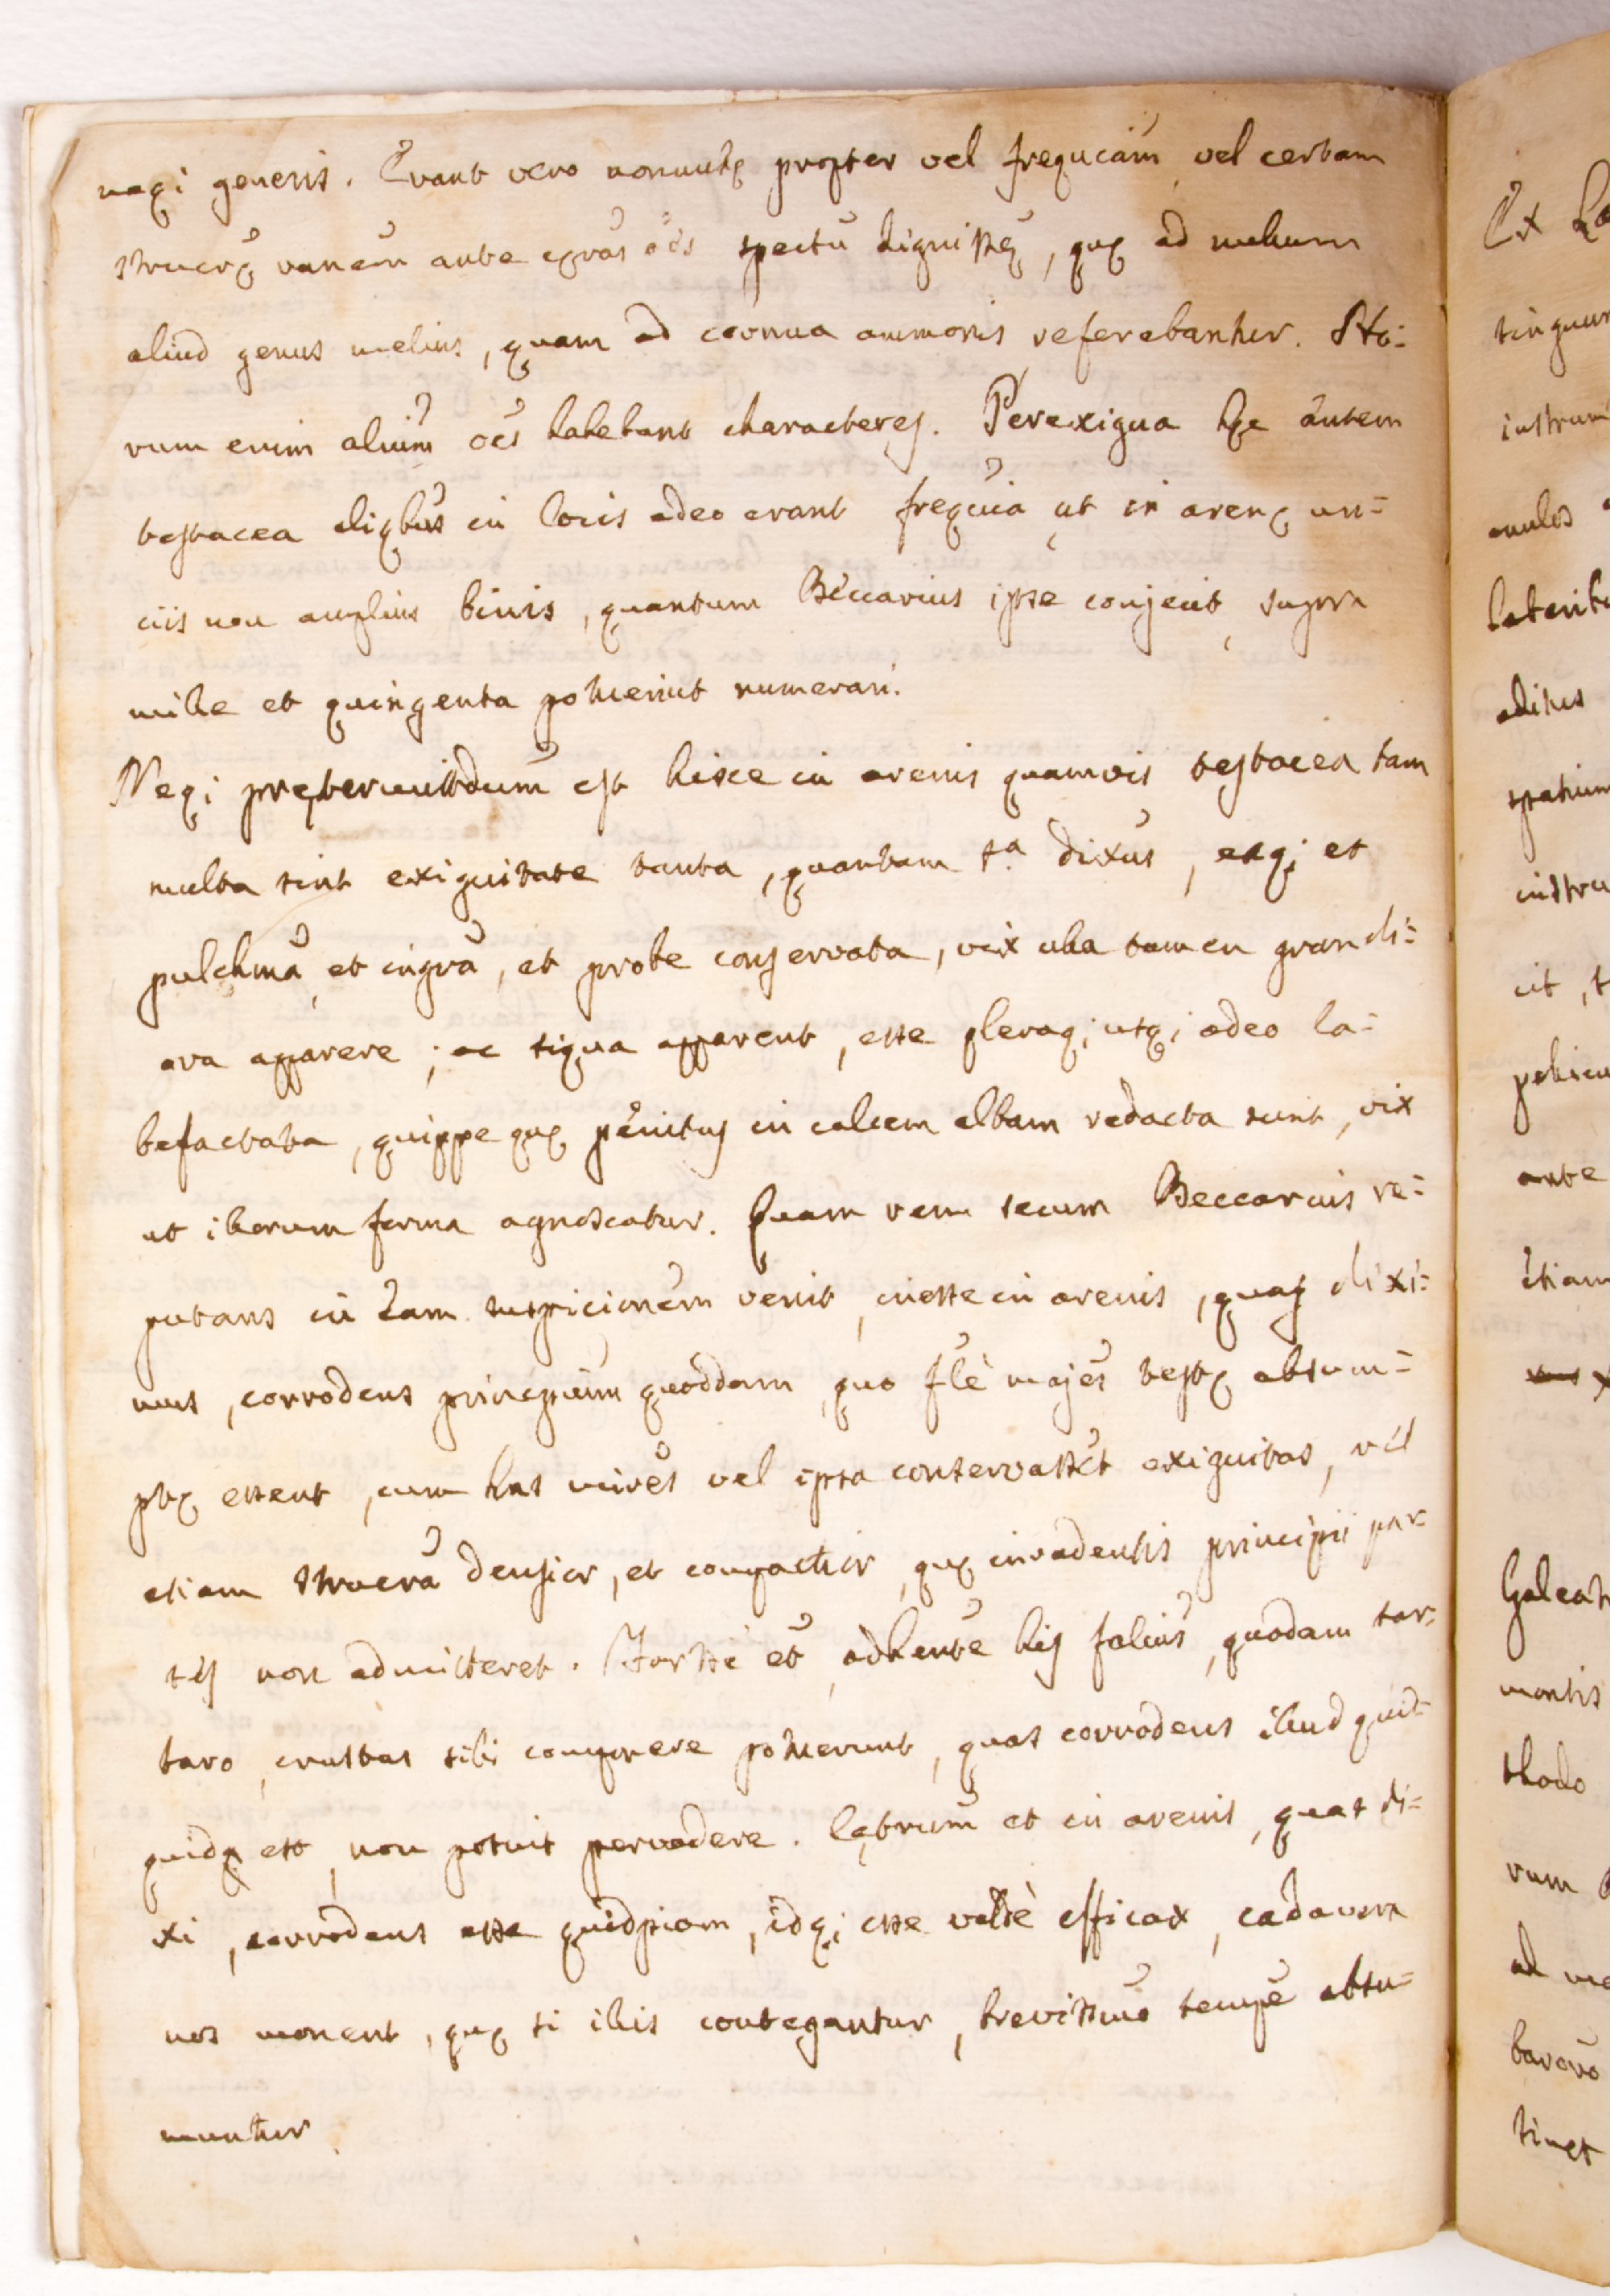 uaqi generis. Erant vero nonnullę propter vel frequeam vel certam
strucrę vanem ante cęras ocs spectu dignissę, quę ad nullum
aliud genus melius, quam ad coornua ammonis referebantur. Ista=
rum enim alium oes habebant characteres. Perexigua hęc autem
testacea aliqbus in locis adeo erant frequia ut in arenę un=
ciis non amplius binis, quantum Beccarius ipse conjecit, supra
mille et quingenta potuerint numerari.
Neqi prętermittdum est hisce in arenis quamvis testacea tam
multa sint exiguitate tanta, quantam sa. dixus, eaqi et
pulchma, et ingra, et probe conservata, vix ulla tamen grandi=
ora apparere; ac siqua apparent, esse pleraqi utqi adeo la=
befactata, quippe quę penitus in calcem albam redacta sunt, vix
ut illorum forma agnoscatur. Quam rem secum Beccarius re=
putans in eam suspicionem venit, inesse in arenis, quas dixi=
mus, corrodens principium quoddam, quo fle majes testę absum=
ptę essent, cum has mires vel ipsa conservasset exiguitas, vel
etiam strucra densior, et compactior, quę invadentis principii par=
tes non admitteret. Forsse et, adhente his salius, quodam tar=
taro, crustas sibi comparere potuerunt, quas corrodens illud quid=
quidq est, non potuit pervadere. Cętrum et in arenis, quas di=
xi, corrodens esse quidpiam, idqi esse valde efficax, cadavera
nos monent, quę si illis contegantur, brevissimo tempe absu=
muntur

Ex
tinguun
instrum
annulos
laterib
aditus
spatium
instru
cit,
pelicu
ante
etiam
Galeat
montis
thodo
rum
ad me
barovo
tinet